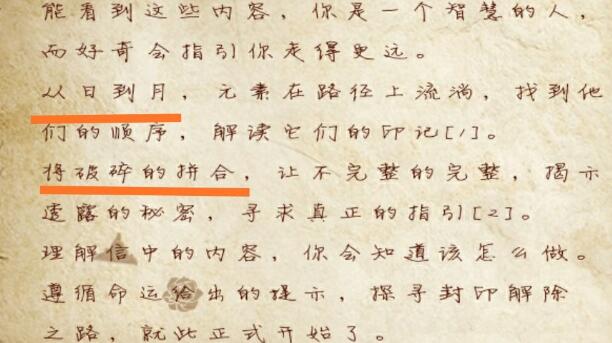 能看到这些内容，你是一个智慧的人，
而好奇会指引你走得更远。
从日到月，元素在路径上流淌，找到他
们的顺序，解读它们的印记[1]。
将破碎的拼合，让不完整的完整，揭示
透露的秘密，寻求真正的指引[2]。
理解信中的内容，你会知道该怎么做。
遵循命运给出的提示，探寻封印解除
之路，就此正式开始了。